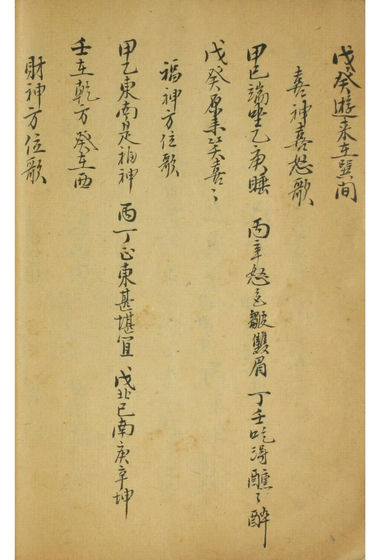 戊癸遊來在巽間
喜神喜怒歌
甲巳端坐乙庚睡 丙辛怒色皺雙眉 丁壬吃得醺〻醉
戊癸原來笑喜〻
福神方位歌
甲乙東南是福神 丙丁正東甚堪宜 戊北己南庚辛坤
壬在乾方癸在西
財神方位歌